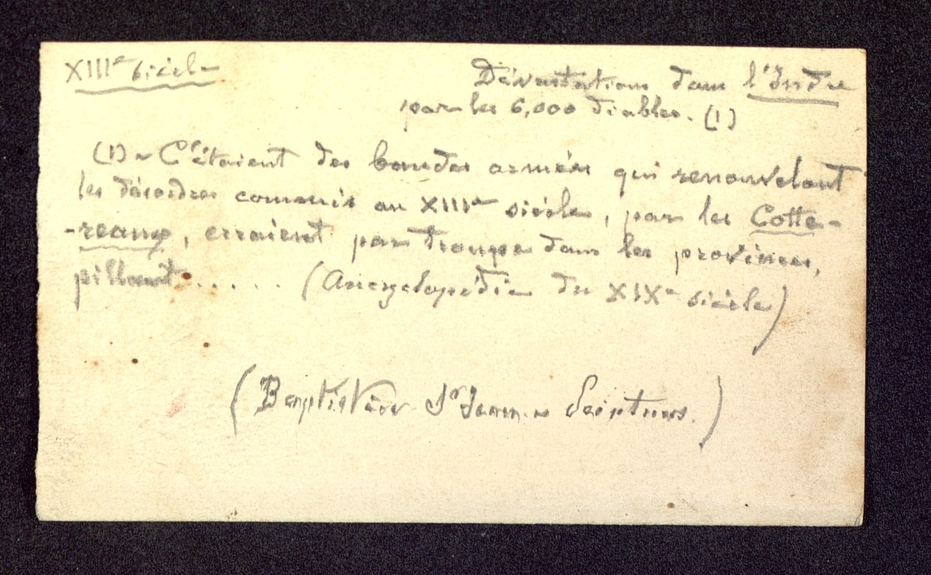 XIIIe siècle
Dévastations dans l'Indre
par les 6,000 diables. (1)
(1) ~ C'étaient des bandes armées qui renouvelant
les désordres commis au XIIIe siècle, par les Cotte-
-reaux, erraient par troupe dans les provinces,
pillant..... (Encyclopédie du XIXe siècle)
(Baptistère St Jean. ~ Peintures.)